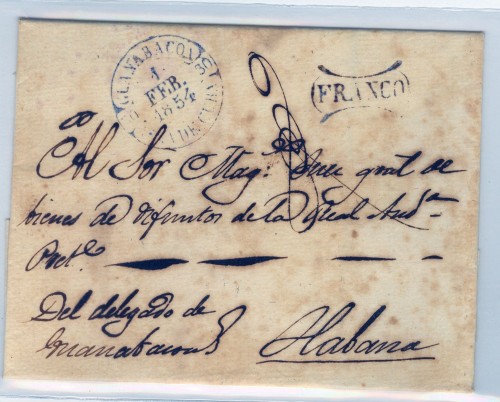 GUANABACOA
1
FEB.
1854
ISLA DE CUBA
FRANCO
Al Sor Mag.º Juez gral de
bienes de difuntos de la Real Aud.ª
Pret.l
Del delegado de
Guanabacoa
Habana